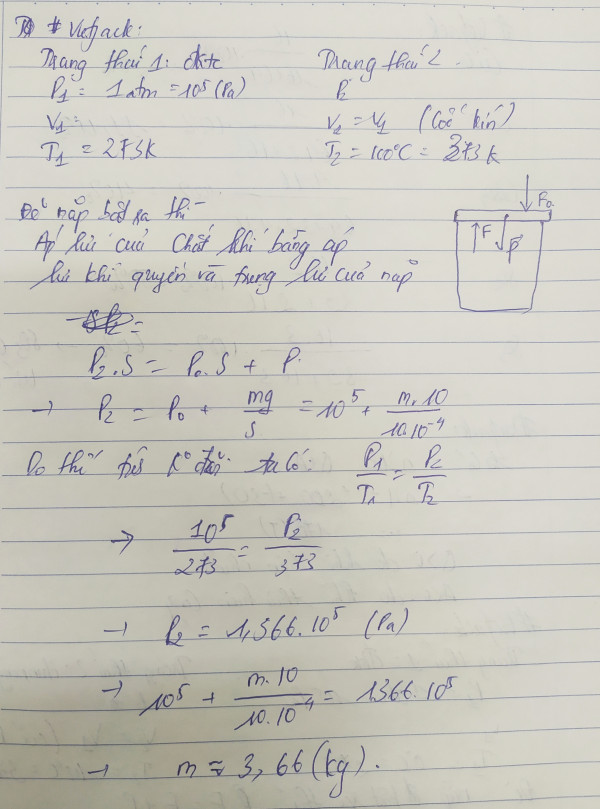 # Vietjack:
Trang thái 1: đktc
P₁ = 1 atm = 10⁵ (Pa)
V₁ =
T₁ = 273K
Trang thái 2.
P₂
V₂ = V₁ (Cốc kín)
T₂ = 100°C = 373K
Để nắp bật ra thì
Áp lực của chất khí bằng áp
lực khí quyển và trọng lực của nắp
F₀
F P
P₂.S = P₀.S + P.
→ P₂ = P₀ + mg/S = 10⁵ + m.10/10.10⁻⁴
Do thể tích k° đổi ta có: P₁/T₁ = P₂/T₂
→ 10⁵/273 = P₂/373
→ P₂ = 1,366.10⁵ (Pa)
→ 10⁵ + m.10/10.10⁻⁴ = 1366.10⁵
→ m ≈ 3,66 (kg).